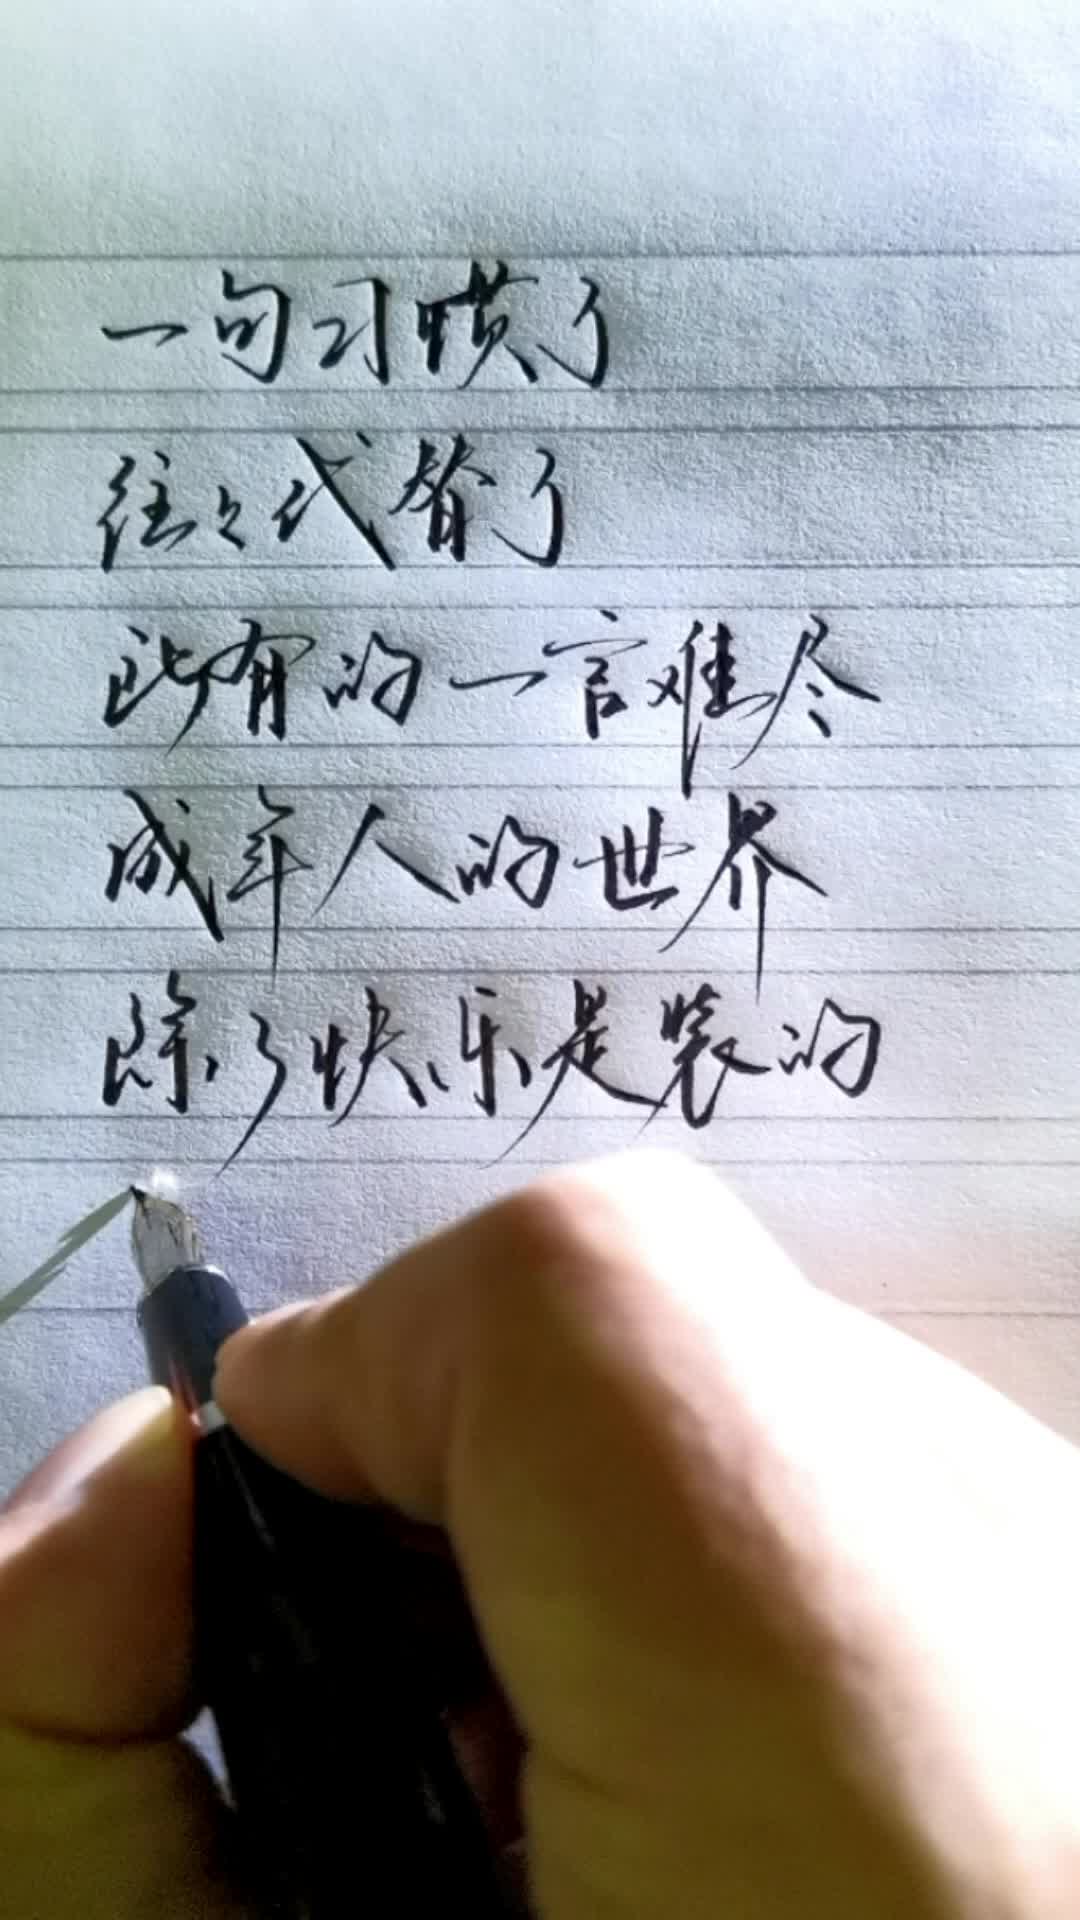 一句习惯了
往々代替了
所有的一言难尽
成年人的世界
除了快乐是装的